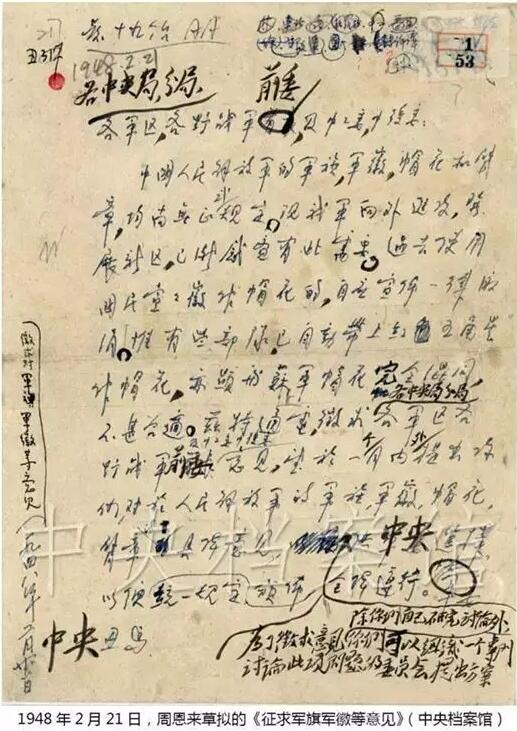 1948.2.21
各中央局,分局 前委
各军区,各野战军
中国人民解放军的军旗,军徽,帽花和臂
章,均尚无正式规定。现我军向外进攻,发
展新区,已渐感有此需要。过去使用
国民党党徽作帽花的,自应宣布一律取
消,惟有些部队已自动带上红五角星
作帽花,亦颇与苏军帽花完全混同
各中央局分局
不甚合适。兹特通电,征求各军区各
野战军前委意见,望于一个月内提出
对于人民解放军的军旗,军徽,帽花,
臂章具体意见 中央
以便统一规定颁布全体遵行。
除你们自己研究讨论外
为了征求意见你们可以组织一个专门
讨论此项问题的委员会提出方案
中央 丑马
征求对军旗军徽等意见
一九四八年二月廿一日
1
53
中央档案馆
1948年2月21日,周恩来草拟的《征求军旗军徽等意见》(中央档案馆)